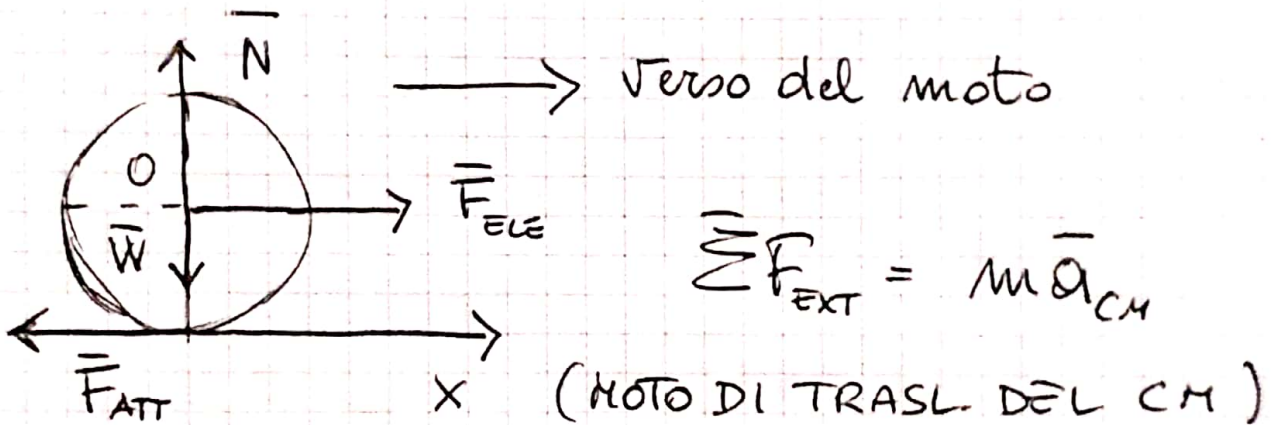 N̄
verso del moto
O
F̄_ELE
W̄
Σ̄F_EXT = m ā_CM
F̄_ATT
X (MOTO DI TRASL. DEL CM)